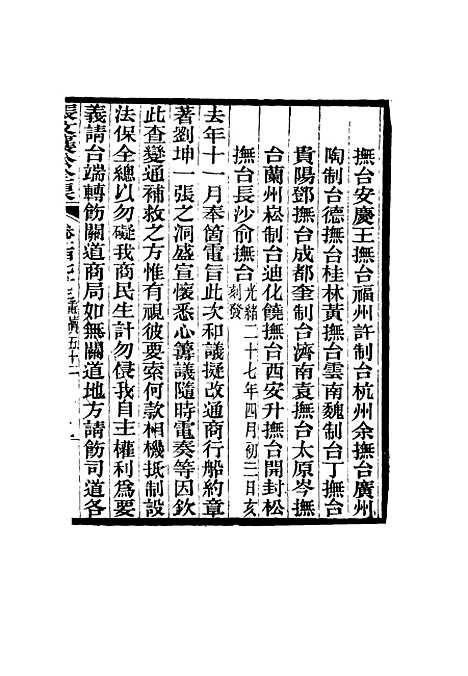 撫台安慶王撫台福州許制台杭州余撫台廣州
陶制台德撫台桂林黃撫台雲南魏制台丁撫台
貴陽鄧撫台成都奎制台濟南袁撫台太原岑撫
台蘭州崧制台迪化饒撫台西安升撫台開封松
撫台長沙俞撫台光緒二十七年四月初三日亥刻發
去年十一月奉箇電旨此次和議擬改通商行船約章
著劉坤一張之洞盛宣懷悉心籌議隨時電奏等因欽
此查變通補救之方惟有視彼要索何款相機抵制設
法保全總以勿礙我商民生計勿侵我自主權利為要
義請台端轉飭關道商局如無關道地方請飭司道各
張文襄公全集 卷一百七十三 電牘五十二